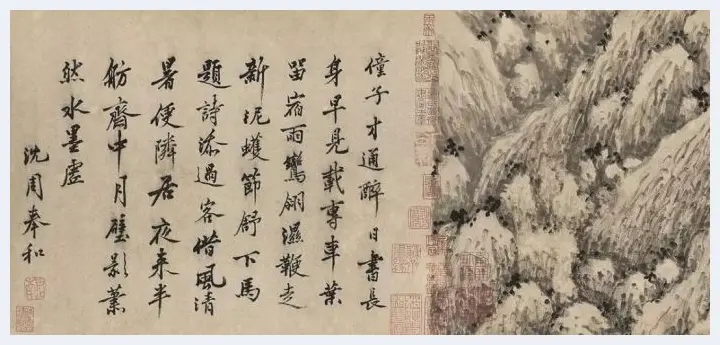 僮子才通醉日書長
身早見載專車葉
留宿雨鶯翎濕鞭走
新泥蠖節舒下馬
題詩添過客借風清
暑便隣居夜来半
舫齋中月壁影蕭
然水墨虛
沈周奉和